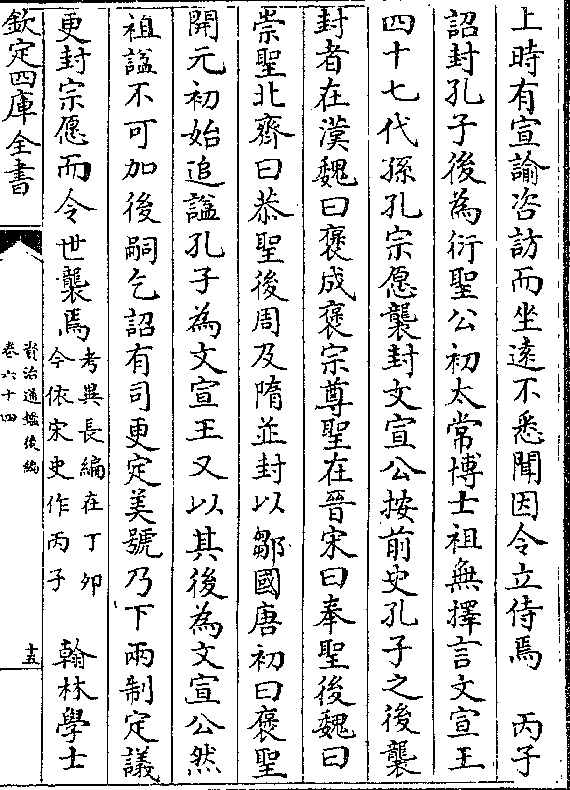 上時有宣諭咨訪而坐遠不悉聞因令立侍焉　丙子
詔封孔子後為衍聖公初太常博士祖無擇言文宣王
四十七代孫孔宗愿襲封文宣公按前史孔子之後襲
封者在漢魏曰褒成褒宗尊聖在晉宋曰奉聖後魏曰
崇聖北齊曰恭聖後周及隋並封以鄒國唐初曰褒聖
開元初始追諡孔子為文宣王又以其後為文宣公然
祖諡不可加後嗣乞詔有司更定美號乃下兩制定議
更封宗愿而令世襲焉考異長編在丁卯今依宋史作丙子　翰林學士
欽定四庫全書
資治通鑑後編
卷六十四
十五